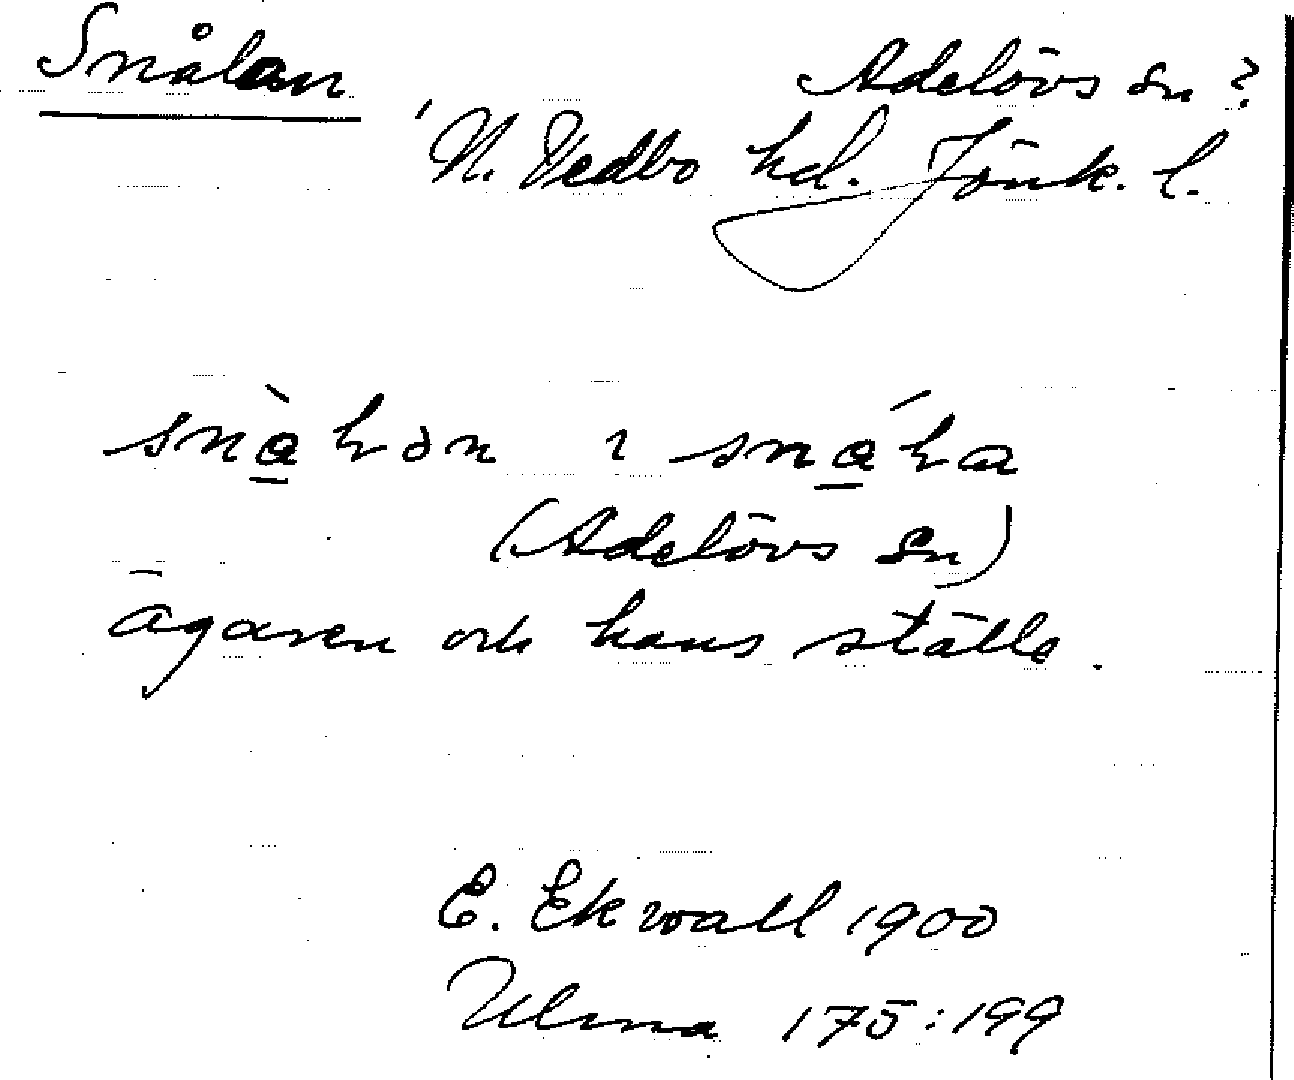 Snålan
Adelövs sn ?
N. Vedbo hd. Jönk. l.
(Adelövs sn)
ägaren och hans ställe.
E. Ekwall 1900
Ulma 175:199